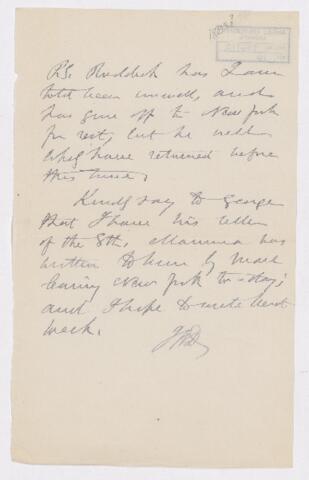 P.S. Ruddick has I am
told been unwell, and
has gone off to New York
for rest, but he will
have returned before
this time.
Kindly say to George
that I have his letter
of the 8th. Mamma has
written to him by mail
leaving New York to-day;
and I hope to write next
week.